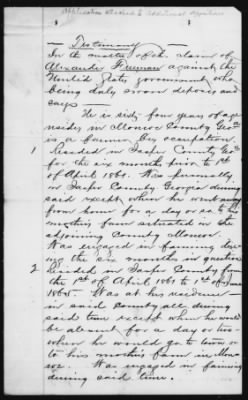 Application
Testimony
In the matter of the claim of
Alexander Freeman against the
United States government who
being duly sworn deposes and
says —
He is sixty four years of age
resides in Monroe County Geo
is a farmer by occupation
1 Resided in Jasper County Geo
for the six months prior to 1st
of April 1861. Was personally
in Jasper County Georgia during
said except when he went away
from home for a day or so to his
mothers farm situated in the
adjoining County Monroe.
Was engaged in farming dur-
ing the six months in question
2 Resided in Jasper County from
the 1st of April 1861 to 1st of June
1865 — Was at his residence
in said County all during
said time except when he would
be absent for a day or two
when he would go to town or
to his mothers farm in Mon
roe. Was engaged in farming
during said time.